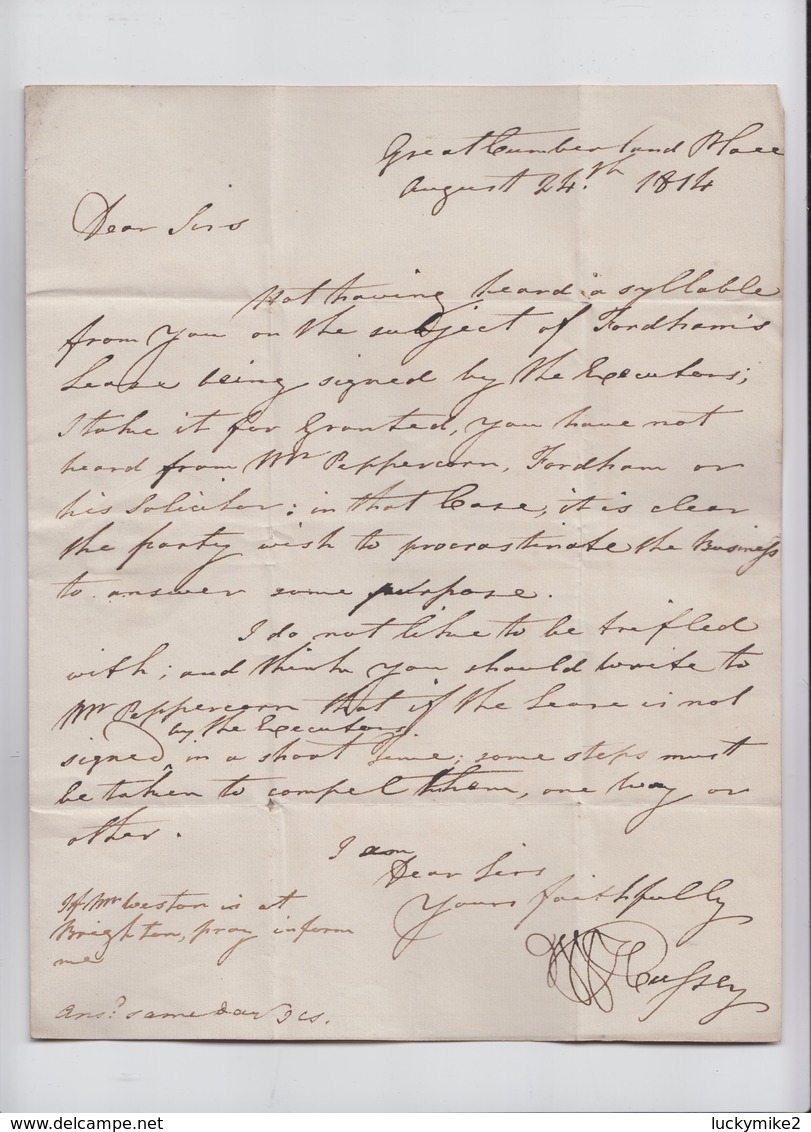 Great Cumberland Place
August 24.th 1814
Dear Sirs
Not having heard a syllable
from you on the subject of Fordham's
Lease being signed by the Executors;
I take it for Granted, you have not
heard from Mr Peppercorn, Fordham or
his Solicitor; in that Case, it is clear
the party wish to procrastinate the Business
to answer some purpose.
I do not like to be trifled
with; and think you should write to
Mr Peppercorn that if the Lease is not
by the Executors
signed ^ in a short Time; some steps must
be taken to compel them, one way or
other.
I am
Dear Sirs
Yours faithfully
Hussey
If Mr Weston is at
Brighton, pray inform
me
Ansd. same day
luckymike2